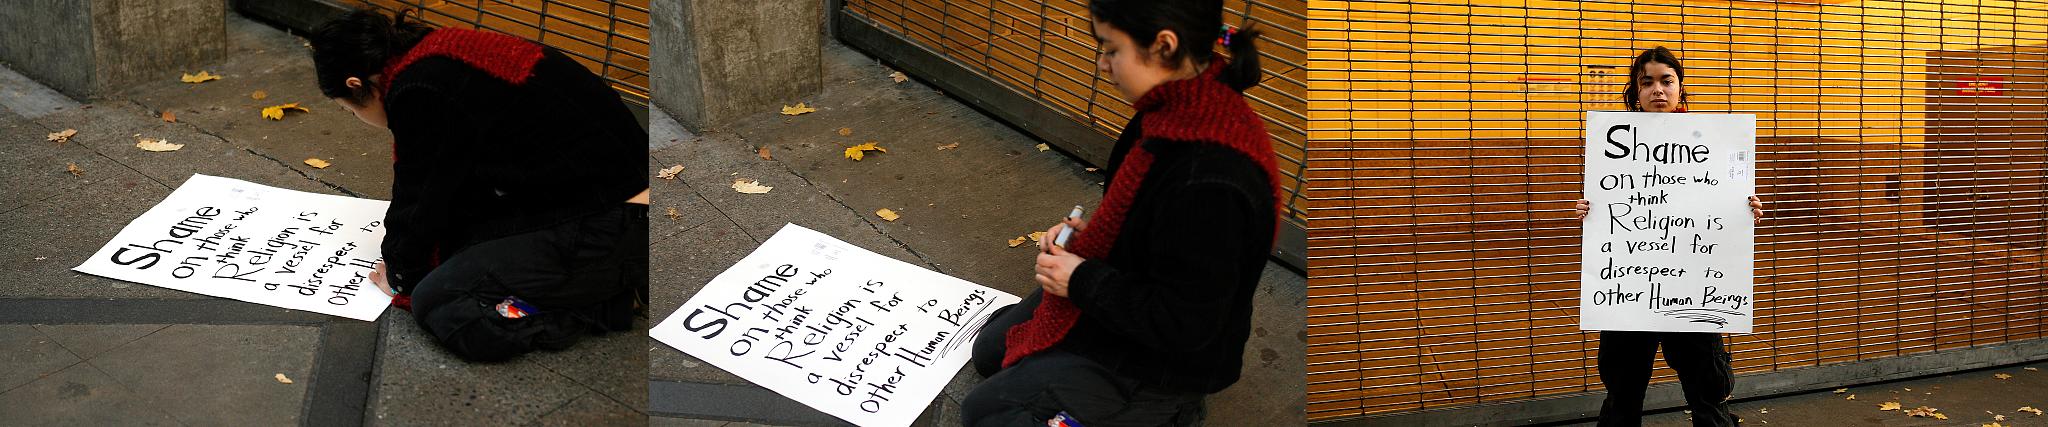 Shame
on those who
think
Religion is
a vessel for
disrespect to
Other H
Shame
on those who
think
Religion is
a vessel for
disrespect to
Other Human Beings
Shame
on those who
think
Religion is
a vessel for
disrespect to
Other Human Beings